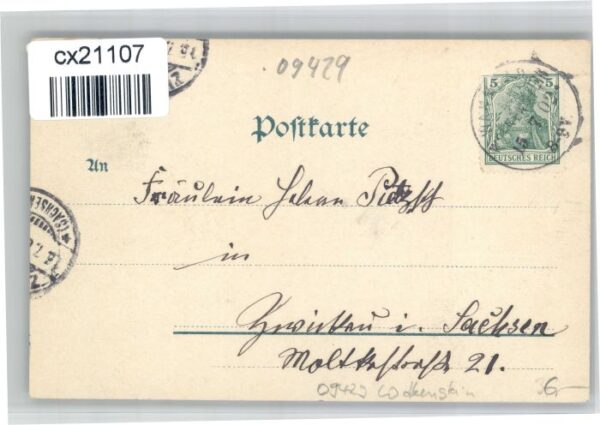 cx21107
09429
Postkarte
5 5
DEUTSCHES REICH
15 7 8-9V
An
Fräulein Helene
in
Zwickau i. Sachsen
Moltkestraße 21.
09429 Wolkenstein
6-
(SACHSEN)